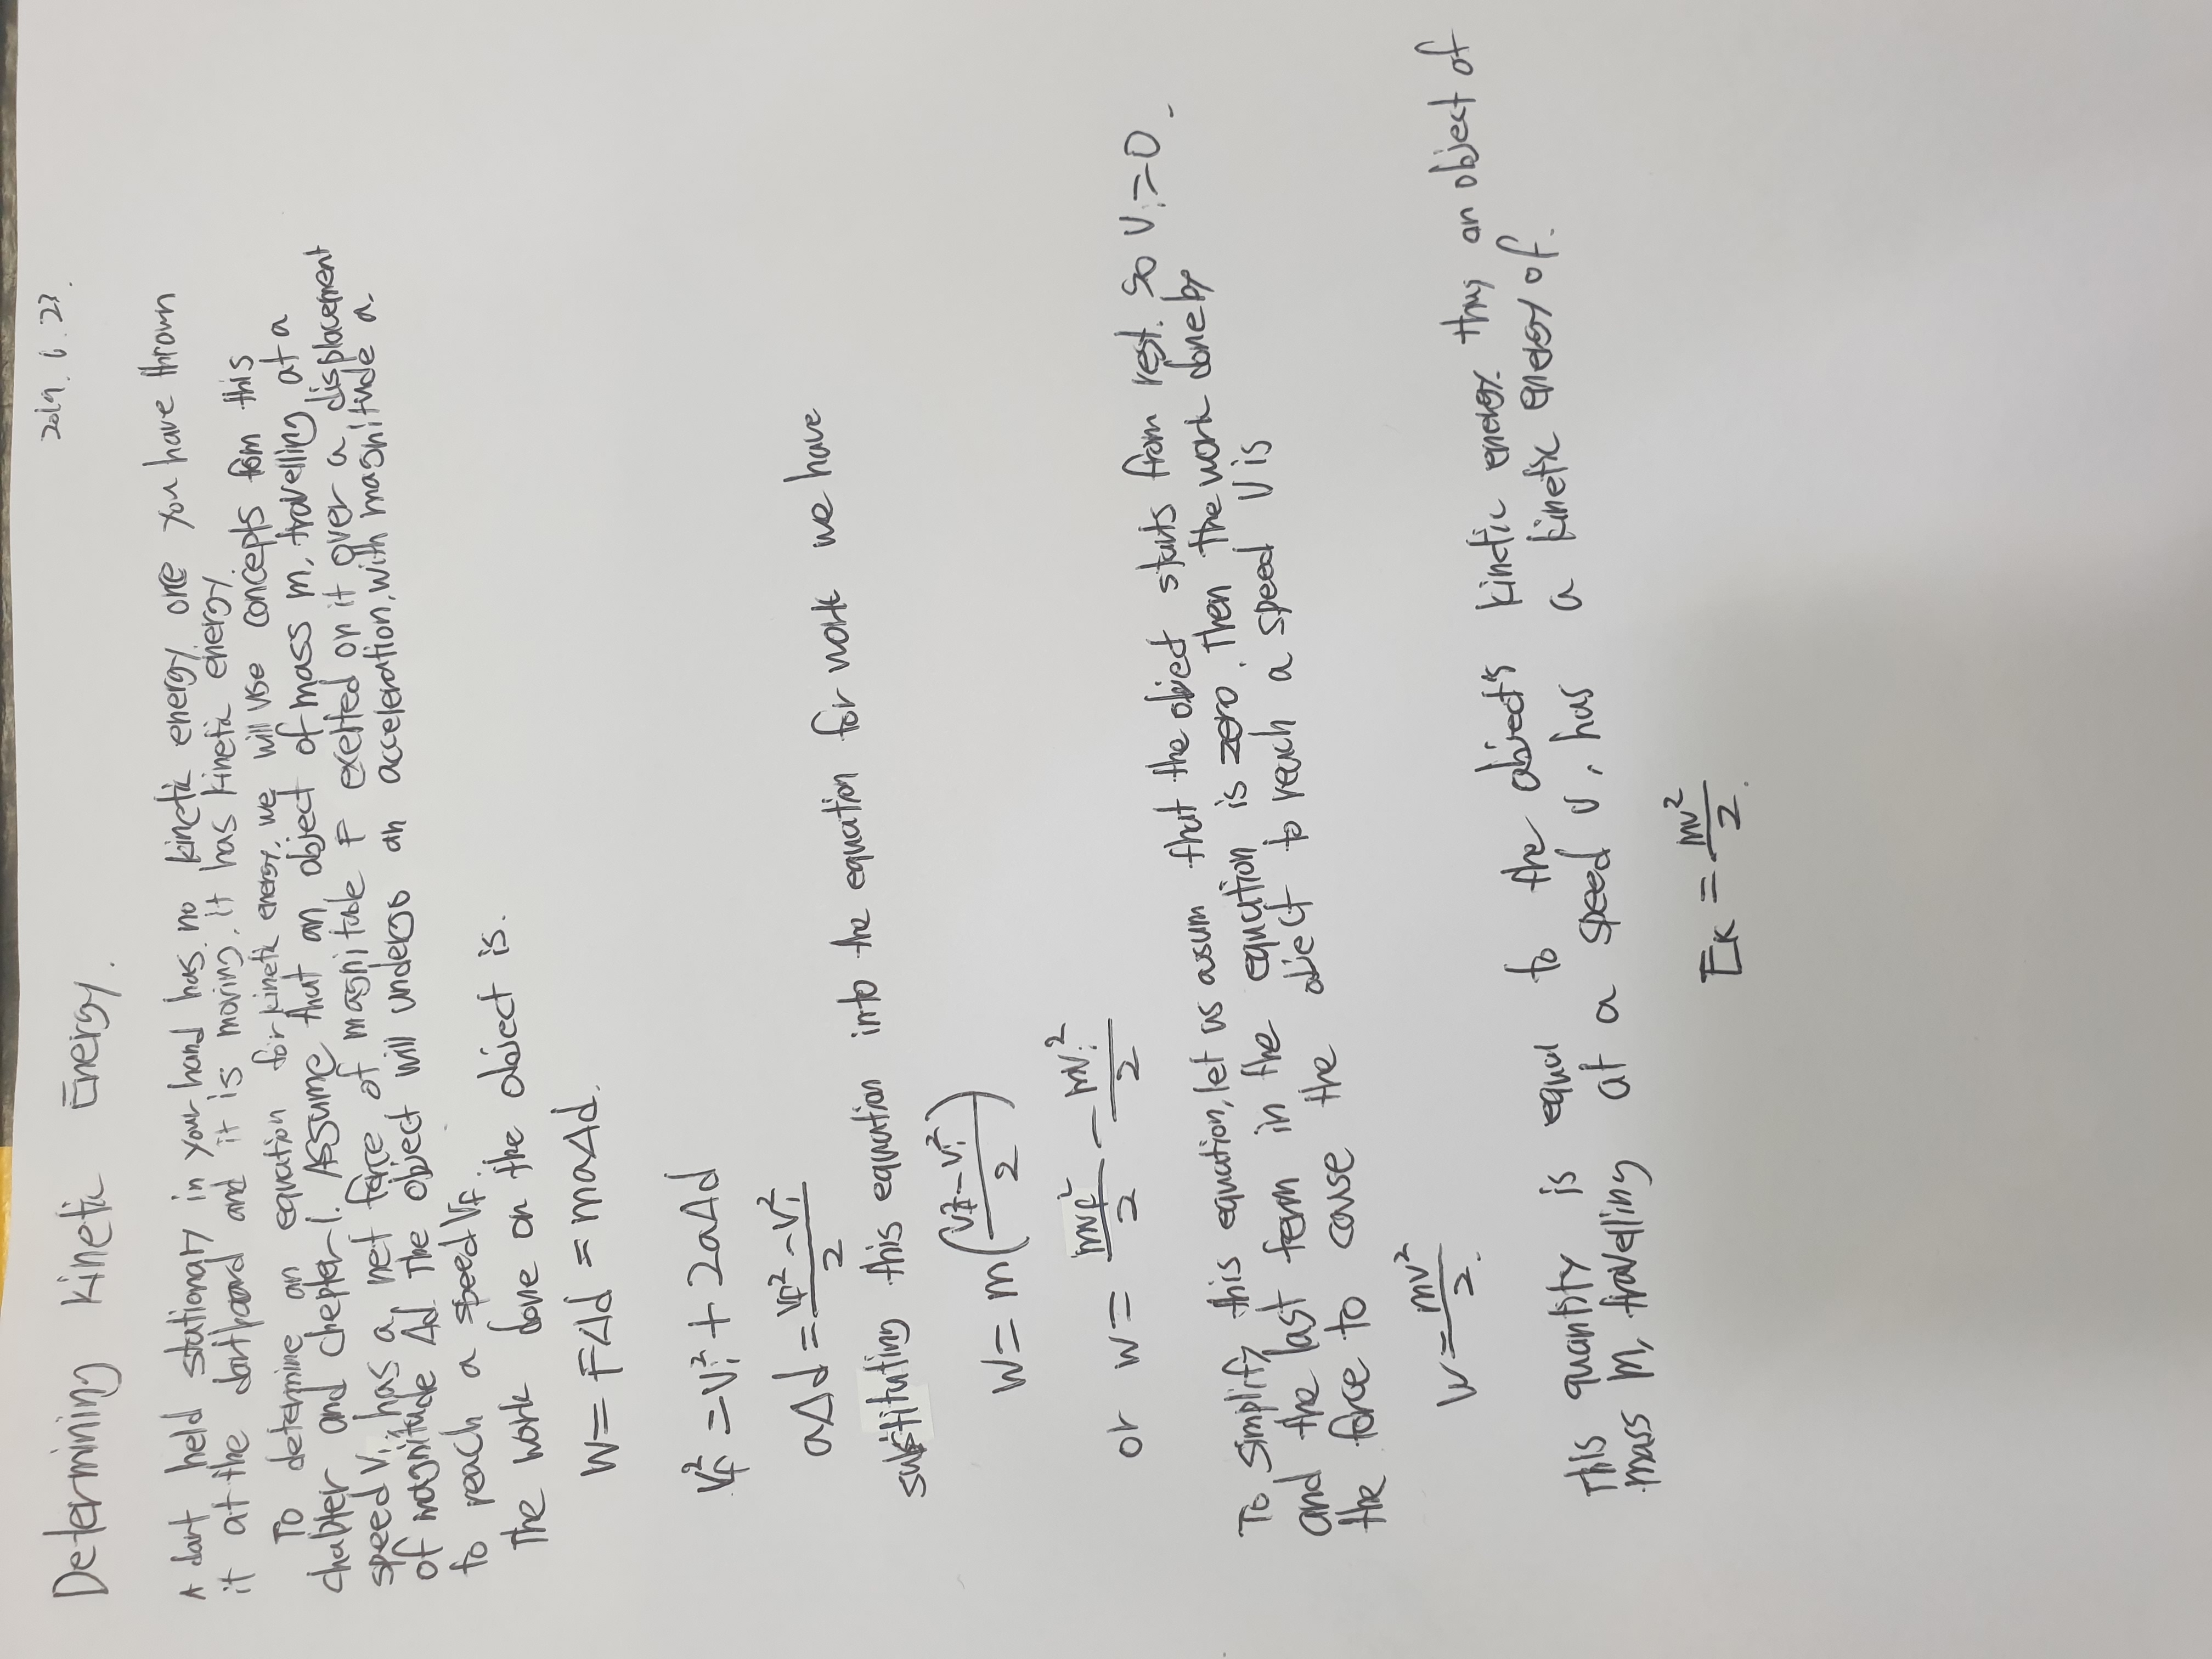 2019. 6. 23.
Determining kinetic Energy.
A dart held stationary in your hand has no kinetic energy. one you have thrown
it at the dartboard and it is moving, it has kinetic energy.
To determine an equation for kinetic energy, we will use concepts fom this
chabter and chepter 1. Assume that an object of mass m, travelling at a
speed vi has a net force of magnitable F exerted on it over a displacement
of magnitude Δd The object will undergo an acceleration, with magnitude a.
to reach a speed Vf.
The work done on the object is.
W = FΔd = maΔd.
Vf² = Vi² + 2aΔd
aΔd = (Vf² - Vi²)/2
substituting this equation into the equation for work we have
W = m((Vf² - Vi²)/2)
or w = mvf²/2 - mvi²/2
To simplify this equation, let us assum that the object starts from rest. so Vi = 0.
and the last term in the equation is zero. Then the work done by
the force to couse the object to reach a speed V is
W = mv²/2.
This quantity is equal to the object's kinetic energy. thus an object of
mass m, travelling at a speed v, has a kinetic energy of.
Ek = mv²/2.